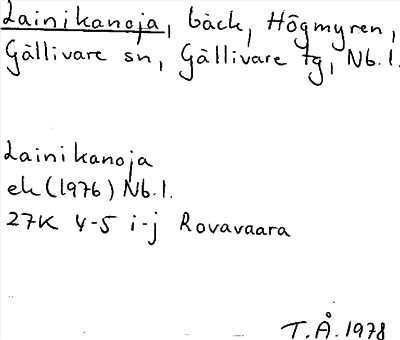 Lainikanoja, bäck, Högmyren,
Gällivare sn, Gällivare tg, Nb.l.
Lainikanoja
ek (1976) Nb.l.
27K 4-5 i-j Rovavaara
T.Å. 1978